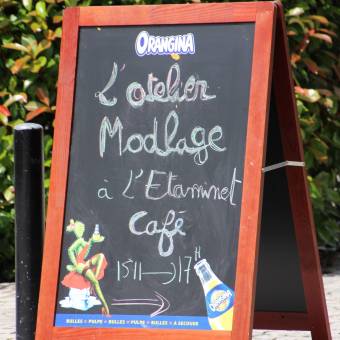 ORANGINA
L'atelier
Modlage
à L'Etaminet
Café
15H → 17H
BULLES * PULPE * BULLES * PULPE * BULLES * A SECOUER